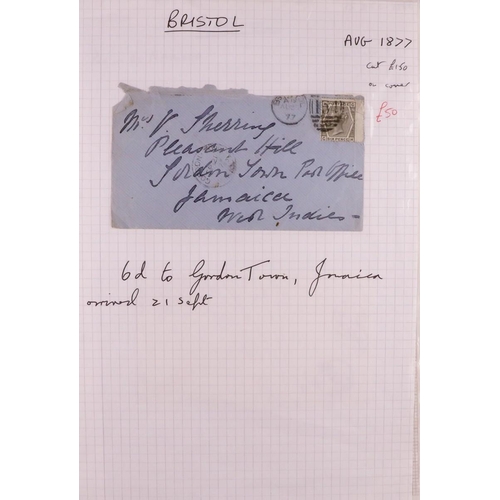 BRISTOL
AUG 1877
Cat £150
on cover
£50
Mrs V. Sherring
Pleasant Hill
Gordon Town Post Office
Jamaica
West Indies
6d to Gordon Town, Jmaica
arrived 21 Sept